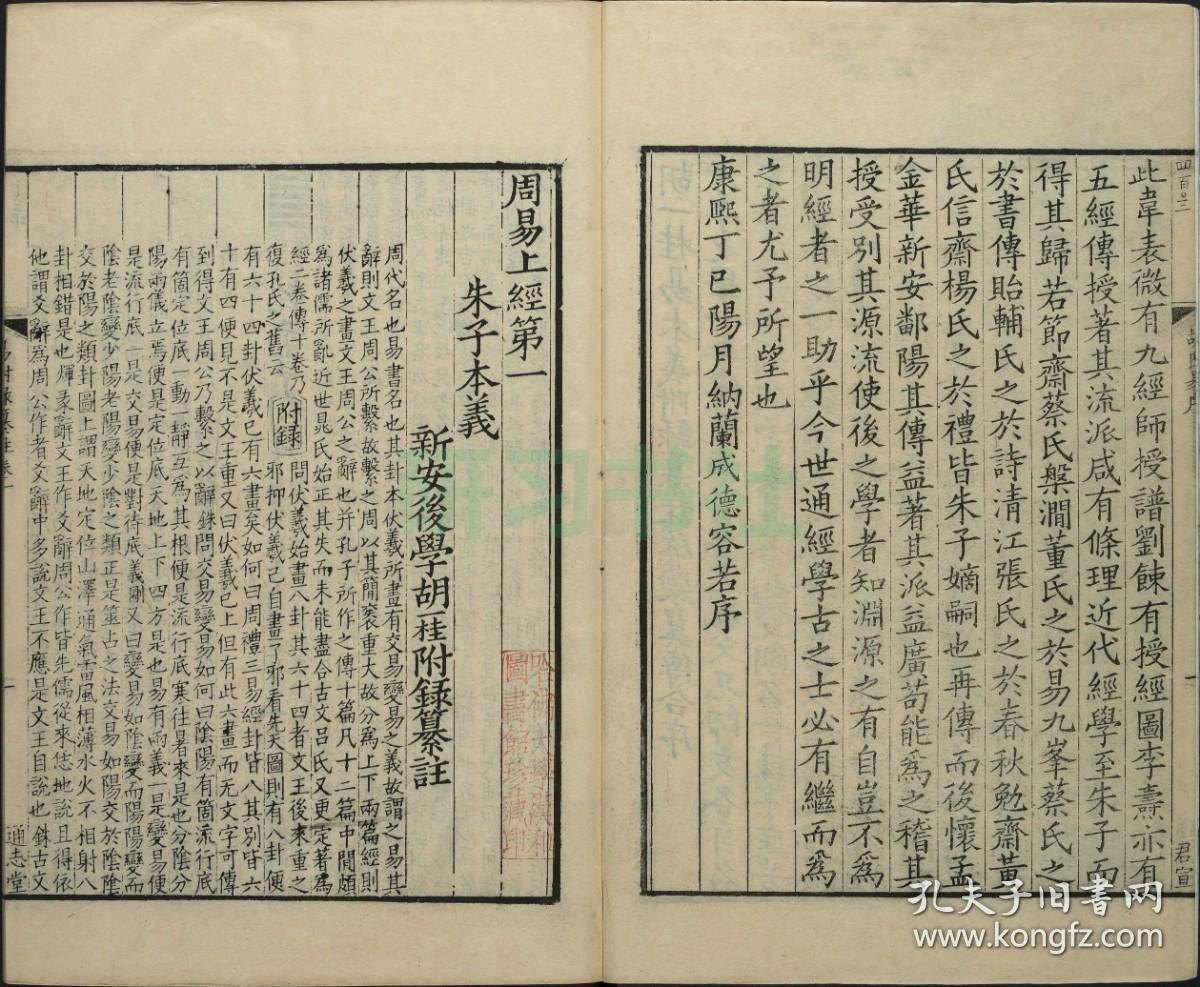 四百三
此韋表微有九經師授譜劉餗有授經圖李燾亦有
五經傳授著其流派咸有條理近代經學至朱子而
得其歸若節齋蔡氏槃澗董氏之於易九峯蔡氏之
於書傳貽輔氏之於詩清江張氏之於春秋勉齋黃
氏信齋楊氏之於禮皆朱子嫡嗣也再傳而後懷孟
金華新安鄱陽其傳益著其派益廣苟能為之稽其
授受別其源流使後之學者知淵源之有自豈不為
明經者之一助乎今世通經學古之士必有繼而為
之者尤予所望也
康熙丁巳陽月納蘭成德容若序
一
君宣
周易上經第一
朱子本義
新安後學胡一桂附錄纂註
周代名也易書名也其卦本伏羲所畫有交易變易之義故謂之易其
辭則文王周公所繫故繫之周以其簡袠重大故分為上下兩篇經則
伏羲之畫文王周公之辭也并孔子所作之傳十篇凡十二篇中閒頗
為諸儒所亂近世晁氏始正其失而未能盡合古文呂氏又更定著為
經二卷傳十卷乃
復孔氏之舊云
附錄
問伏羲始畫八卦其六十四者文王後來重之
邪抑伏羲已自畫了邪看先天圖則有八卦便
有六十四卦伏羲已有六畫矣如何曰周禮三易經卦皆八其別皆六
十有四便見不是文王重又曰伏羲已上但有此六畫而无文字可傳
到得文王周公乃繫之以辭銖問交易變易如何曰陰陽有箇流行底
有箇定位底一動一靜互為其根便是流行底寒往暑來是也分陰分
陽兩儀立焉便是定位底天地上下四方是也易有兩義一是變易便
是流行底一是交易便是對待底義剛又曰變易如陰變而陽陽變而
陰老陰變少陽老陽變少陰之類正是筮占之法交易如陽交於陰陰
交於陽之類卦圖上謂天地定位山澤通氣雷風相薄水火不相射八
卦相錯是也煇彖辭文王作爻辭周公作皆先儒從來恁地說且得依
他謂爻辭為周公作者爻辭中多說文王不應是文王自說也銖古文
一
通志堂
孔夫子旧书网
www.kongfz.com